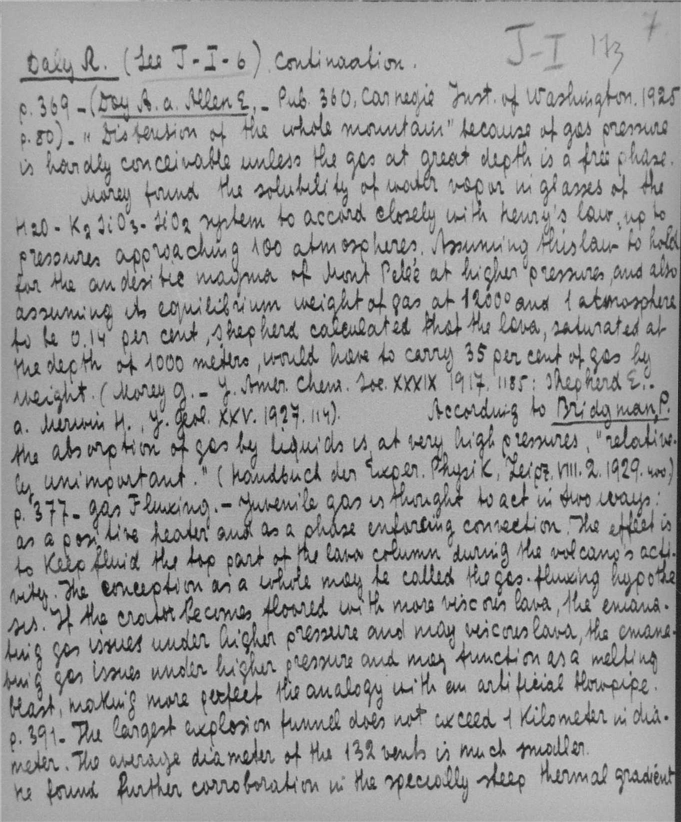 7.
J-I 173
Daly R. (See J-I-6) Continuation.
p. 369 - (Day A. a. Allen E, - Pub. 360, Carnegie Inst. of Washington. 1925
p. 80) - "Distension of the whole mountain" because of gas pressure
is hardly conceivable unless the gas at great depth is a free phase.
Morey found the solubility of water vapor in glasses of the
H2O - K2SiO3 - SiO2 system to accord closely with Henry's law, up to
pressures approaching 100 atmospheres. Assuming this law to hold
for the andesitic magma of Mont Pelée at higher pressures, and also
assuming its equilibrium weight of gas at 1200° and 1 atmosphere
to be 0.14 per cent, Shepherd calculated that the lava, saturated at
the depth of 1000 meters, would have to carry 35 per cent of gas by
weight. (Morey G. - J. Amer. Chem. Soc. XXXIX 1917. 1185: Shepherd E. -
a. Merwin H., J. Geol. XXV. 1927. 114). According to Bridgman, P.
the absorption of gas by liquids is, at very high pressures, "relative-
ly unimportant." (Handbuch der Exper. Physik, Leipz. VIII. 2. 1929. 400)
p. 377 - Gas Fluxing. - Juvenile gas is thought to act in two ways:
as a positive heater and as a phase enforcing convection. The effect is
to keep fluid the top part of the lava column during the volcano's acti-
vity. The conception as a whole may be called the gas-fluxing hypothe
sis. If the crater becomes floored with more viscous lava, the emana-
ting gas issues under higher pressure and may viscous lava, the emana-
ting gas issues under higher pressure and may function as a melting
blast, making more perfect the analogy with an artificial blowpipe.
p. 391 - The largest explosion funnel does not exceed 1 kilometer in dia-
meter. The average diameter of the 132 vents is much smaller.
He found further corroboration in the specially steep thermal gradient